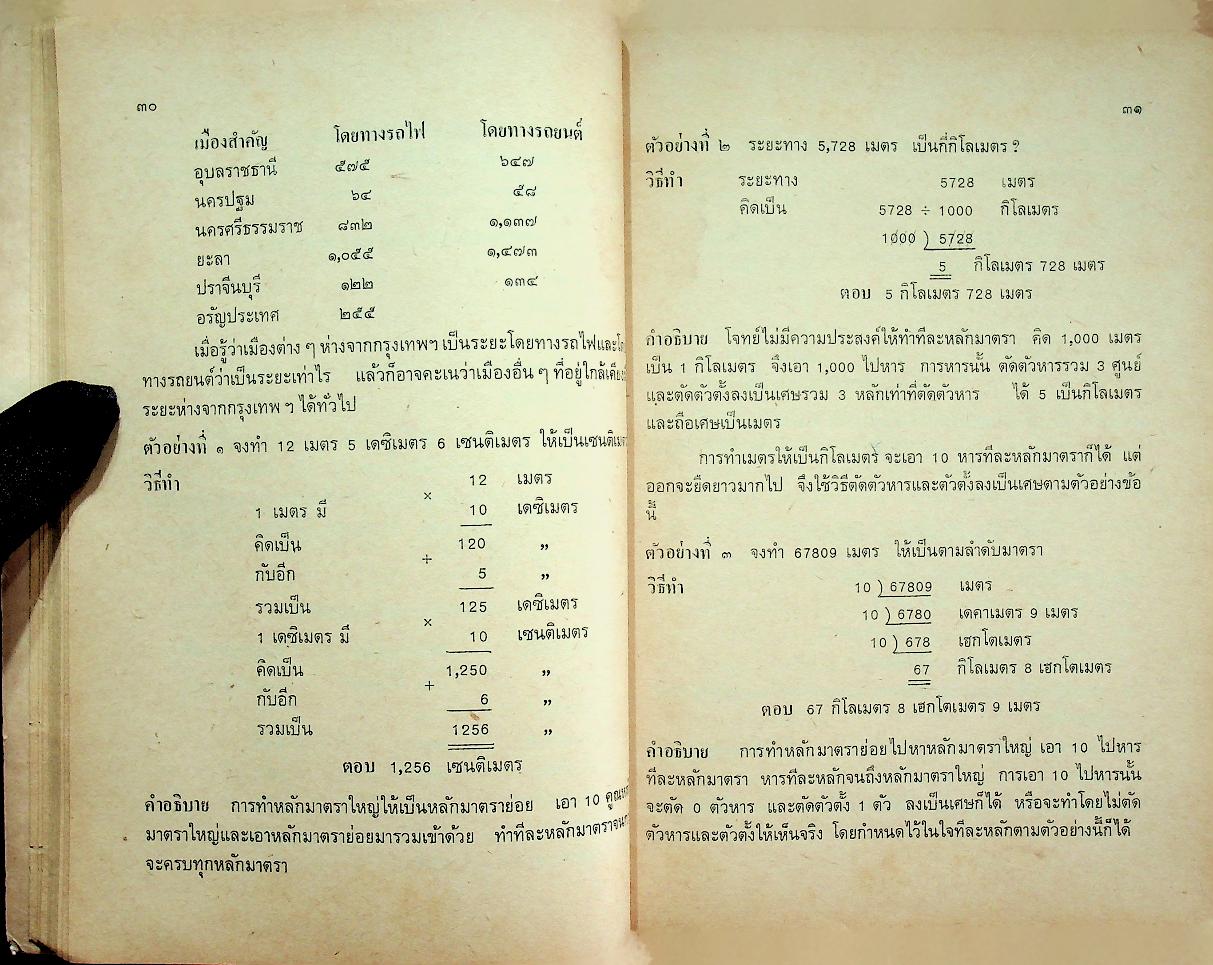 ๓๐
เมืองสำคัญ โดยทางรถไฟ โดยทางรถยนต์
อุบลราชธานี ๕๗๕ ๖๔๗
นครปฐม ๖๔ ๕๘
นครศรีธรรมราช ๘๓๒ ๑,๑๓๗
ยะลา ๑,๐๕๕ ๑,๔๗๓
ปราจีนบุรี ๑๒๒ ๑๓๔
อรัญประเทศ ๒๕๕
เมื่อรู้ว่าเมืองต่าง ๆ ห่างจากกรุงเทพฯ เป็นระยะโดยทางรถไฟและ
ทางรถยนต์ว่าเป็นระยะเท่าไร แล้วก็อาจคะเนว่าเมืองอื่น ๆ ที่อยู่ใกล้เคียง
ระยะห่างจากกรุงเทพ ฯ ได้ทั่วไป
ตัวอย่างที่ ๑ จงทำ 12 เมตร 5 เดซิเมตร 6 เซนติเมตร ให้เป็นเซนติเมตร
วิธีทำ 12 เมตร
×
1 เมตร มี 10 เดซิเมตร
คิดเป็น 120 ”
+
กับอีก 5 ”
รวมเป็น 125 เดซิเมตร
×
1 เดซิเมตร มี 10 เซนติเมตร
คิดเป็น 1,250 ”
+
กับอีก 6 ”
รวมเป็น 1256 ”
ตอบ 1,256 เซนติเมตร
คำอธิบาย การทำหลักมาตราใหญ่ให้เป็นหลักมาตราย่อย เอา 10 คูณ
มาตราใหญ่และเอาหลักมาตราย่อยมารวมเข้าด้วย ทำทีละหลักมาตราจน
จะครบทุกหลักมาตรา
๓๑
ตัวอย่างที่ ๒ ระยะทาง 5,728 เมตร เป็นกี่กิโลเมตร ?
วิธีทำ ระยะทาง 5728 เมตร
คิดเป็น 5728 ÷ 1000 กิโลเมตร
1000 ) 5728
5 กิโลเมตร 728 เมตร
ตอบ 5 กิโลเมตร 728 เมตร
คำอธิบาย โจทย์ไม่มีความประสงค์ให้ทำทีละหลักมาตรา คิด 1,000 เมตร
เป็น 1 กิโลเมตร จึงเอา 1,000 ไปหาร การหารนั้น ตัดตัวหารรวม 3 ศูนย์
และตัดตัวตั้งลงเป็นเศษรวม 3 หลักเท่าที่ตัดตัวหาร ได้ 5 เป็นกิโลเมตร
และถือเศษเป็นเมตร
การทำเมตรให้เป็นกิโลเมตร จะเอา 10 หารทีละหลักมาตราก็ได้ แต่
ออกจะยืดยาวมากไป จึงใช้วิธีตัดตัวหารและตัวตั้งลงเป็นเศษตามตัวอย่างข้อ
นี้
ตัวอย่างที่ ๓ จงทำ 67809 เมตร ให้เป็นตามลำดับมาตรา
วิธีทำ 10 ) 67809 เมตร
10 ) 6780 เดคาเมตร 9 เมตร
10 ) 678 เฮกโตเมตร
67 กิโลเมตร 8 เฮกโตเมตร
ตอบ 67 กิโลเมตร 8 เฮกโตเมตร 9 เมตร
คำอธิบาย การทำหลักมาตราย่อยไปหาหลักมาตราใหญ่ เอา 10 ไปหาร
ทีละหลักมาตรา หารทีละหลักจนถึงหลักมาตราใหญ่ การเอา 10 ไปหารนั้น
จะตัด 0 ตัวหาร และตัดตัวตั้ง 1 ตัว ลงเป็นเศษก็ได้ หรือจะทำโดยไม่ตัด
ตัวหารและตัวตั้งให้เห็นจริง โดยกำหนดไว้ในใจทีละหลักตามตัวอย่างนี้ก็ได้